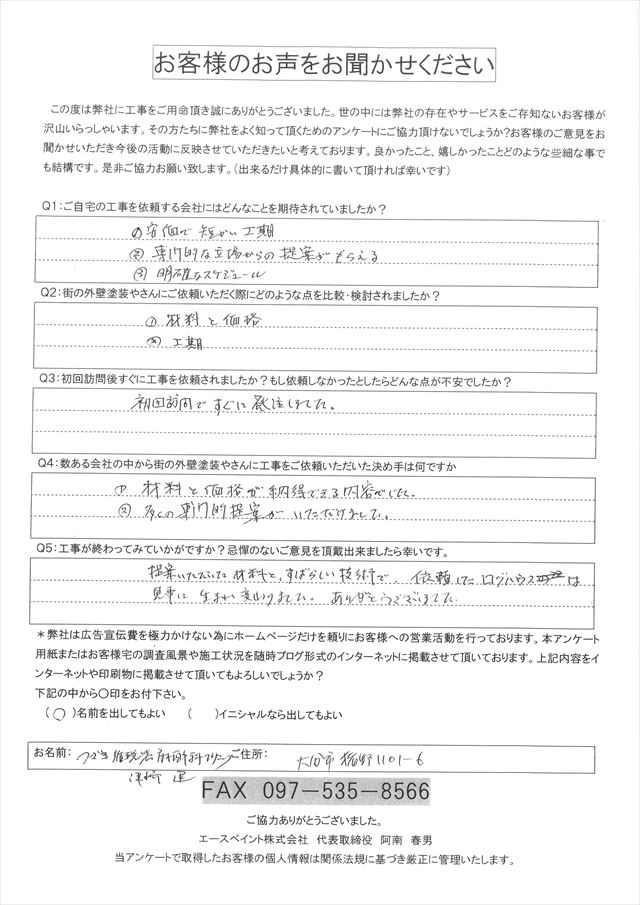 お客様のお声をお聞かせください
この度は弊社に工事をご用命頂き誠にありがとうございました。世の中には弊社の存在やサービスをご存知ないお客様が
沢山いらっしゃいます。その方たちに弊社をよく知って頂くためのアンケートにご協力頂けないでしょうか?お客様のご意見をお
聞かせいただき今後の活動に反映させていただきたいと考えております。良かったこと、嬉しかったことどのような些細な事で
も結構です。是非ご協力お願い致します。(出来るだけ具体的に書いて頂ければ幸いです)
Q1:ご自宅の工事を依頼する会社にはどんなことを期待されていましたか?
① 安価で短かい工期
② 専門的な立場からの提案がもらえる
③ 明確なスケジュール
Q2:街の外壁塗装やさんにご依頼いただく際にどのような点を比較・検討されましたか?
① 材料と価格
② 工期
Q3:初回訪問後すぐに工事を依頼されましたか?もし依頼しなかったとしたらどんな点が不安でしたか?
初回訪問ですぐに発注しました。
Q4:数ある会社の中から街の外壁塗装やさんに工事をご依頼いただいた決め手は何ですか
① 材料と価格が納得できる内容でした。
② 多くの専門的提案がいただけました。
Q5:工事が終わってみていかがですか?忌憚のないご意見を頂戴出来ましたら幸いです。
提案いただいた材料と、すばらしい技術で、依頼したログハウスは
見事に生まれ変わりました。ありがとうございました。
*弊社は広告宣伝費を極力かけない為にホームページだけを頼りにお客様への営業活動を行っております。本アンケート
用紙またはお客様宅の調査風景や施工状況を随時ブログ形式のインターネットに掲載させて頂いております。上記内容をイ
ンターネットや印刷物に掲載させて頂いてもよろしいでしょうか?
下記の中から〇印をお付下さい。
(〇)名前を出してもよい ( )イニシャルなら出してもよい
お名前: ご住所: 大分市 1101-6
FAX 097-535-8566
ご協力ありがとうございました。
エースペイント株式会社 代表取締役 阿南 春男
当アンケートで取得したお客様の個人情報は関係法規に基づき厳正に管理いたします。